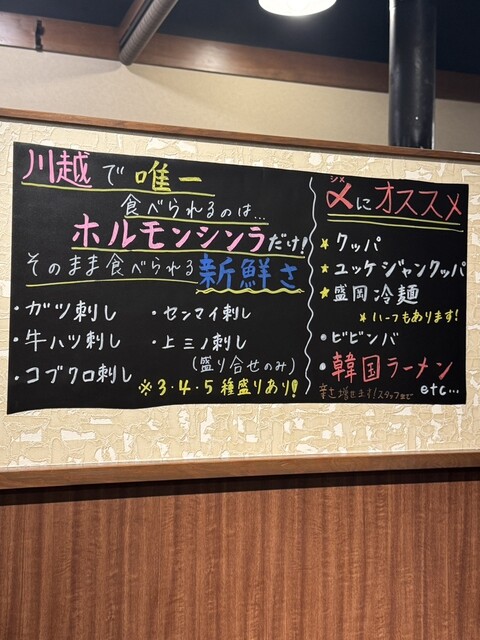 川越で唯一
食べられるのは…
ホルモンシンラだけ!
そのまま食べられる新鮮さ
・ガツ刺し
・センマイ刺し
・牛ハツ刺し
・上ミノ刺し
・コブクロ刺し
(盛り合せのみ)
※3・4・5種盛りあり!
シメ
〆にオススメ
★クッパ
★ユッケジャンクッパ
★盛岡冷麺
*ハーフもあります!
●ビビンバ
●韓国ラーメン
辛さ増せます!スタッフまで
etc…